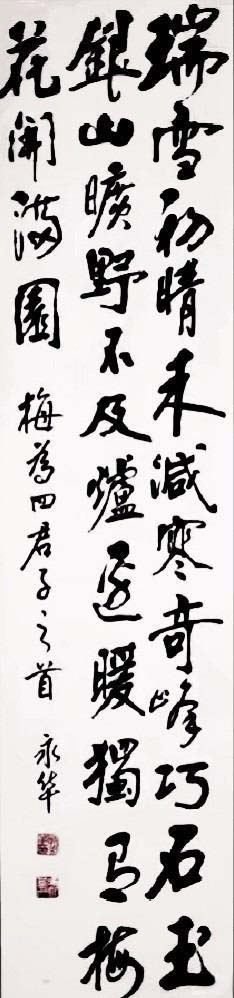 瑞雪初晴未減寒奇峰巧石玉
銀山曠野不及爐邊暖獨有梅
花開滿園
梅為四君子之首
永华